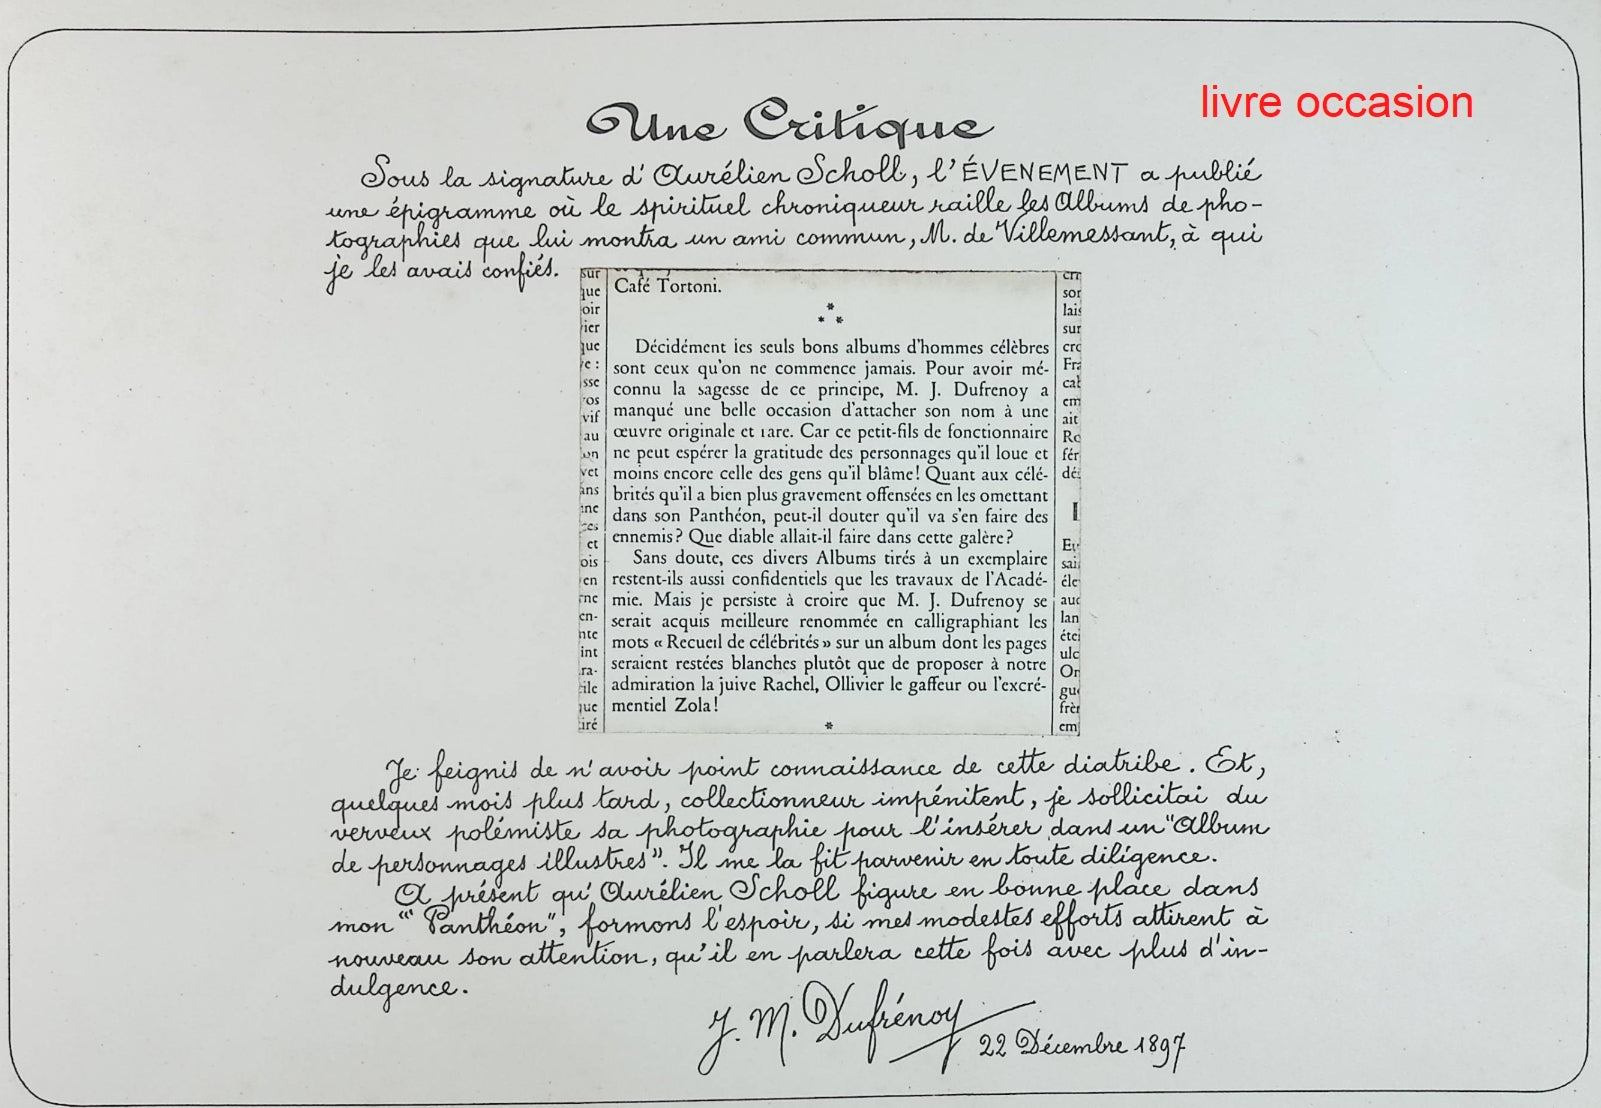 livre occasion
Une Critique
Sous la signature d'Aurélien Scholl, l'ÉVENEMENT a publié
une épigramme où le spirituel chroniqueur raille les Albums de pho-
tographies que lui montra un ami commun, M. de Villemessant, à qui
je les avais confiés.
Café Tortoni.
* * *
Décidément les seuls bons albums d'hommes célèbres
sont ceux qu'on ne commence jamais. Pour avoir mé-
connu la sagesse de ce principe, M. J. Dufrenoy a
manqué une belle occasion d'attacher son nom à une
œuvre originale et rare. Car ce petit-fils de fonctionnaire
ne peut espérer la gratitude des personnages qu'il loue et
moins encore celle des gens qu'il blâme! Quant aux célé-
brités qu'il a bien plus gravement offensées en les omettant
dans son Panthéon, peut-il douter qu'il va s'en faire des
ennemis? Que diable allait-il faire dans cette galère?
Sans doute, ces divers Albums tirés à un exemplaire
restent-ils aussi confidentiels que les travaux de l'Acadé-
mie. Mais je persiste à croire que M. J. Dufrenoy se
serait acquis meilleure renommée en calligraphiant les
mots « Recueil de célébrités » sur un album dont les pages
seraient restées blanches plutôt que de proposer à notre
admiration la juive Rachel, Ollivier le gaffeur ou l'excré-
mentiel Zola!
*
Je feignis de n'avoir point connaissance de cette diatribe. Et,
quelques mois plus tard, collectionneur impénitent, je sollicitai du
verveux polémiste sa photographie pour l'insérer dans un "Album
de personnages illustres". Il me la fit parvenir en toute diligence.
A présent qu'Aurélien Scholl figure en bonne place dans
mon "Panthéon", formons l'espoir, si mes modestes efforts attirent à
nouveau son attention, qu'il en parlera cette fois avec plus d'in-
dulgence.
J. M. Dufrénoy
22 Décembre 1897